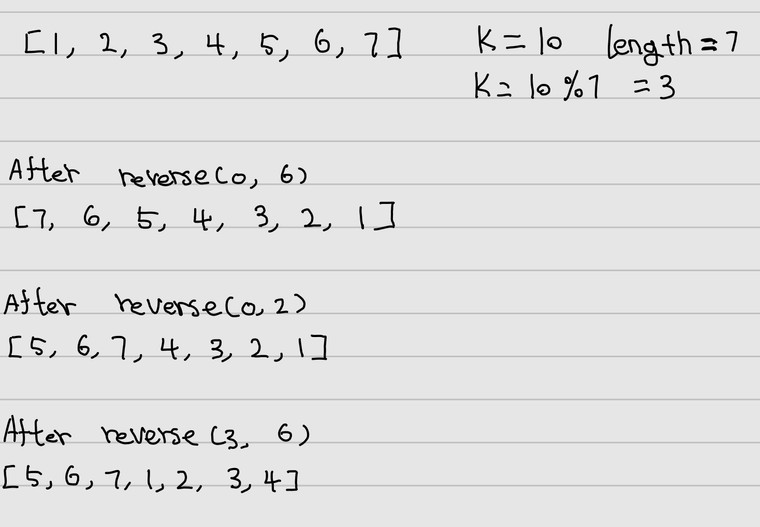 [1, 2, 3, 4, 5, 6, 7] K = 10 length = 7
K = 10 % 7 = 3
After reverse(0, 6)
[7, 6, 5, 4, 3, 2, 1]
After reverse(0, 2)
[5, 6, 7, 4, 3, 2, 1]
After reverse (3, 6)
[5, 6, 7, 1, 2, 3, 4]